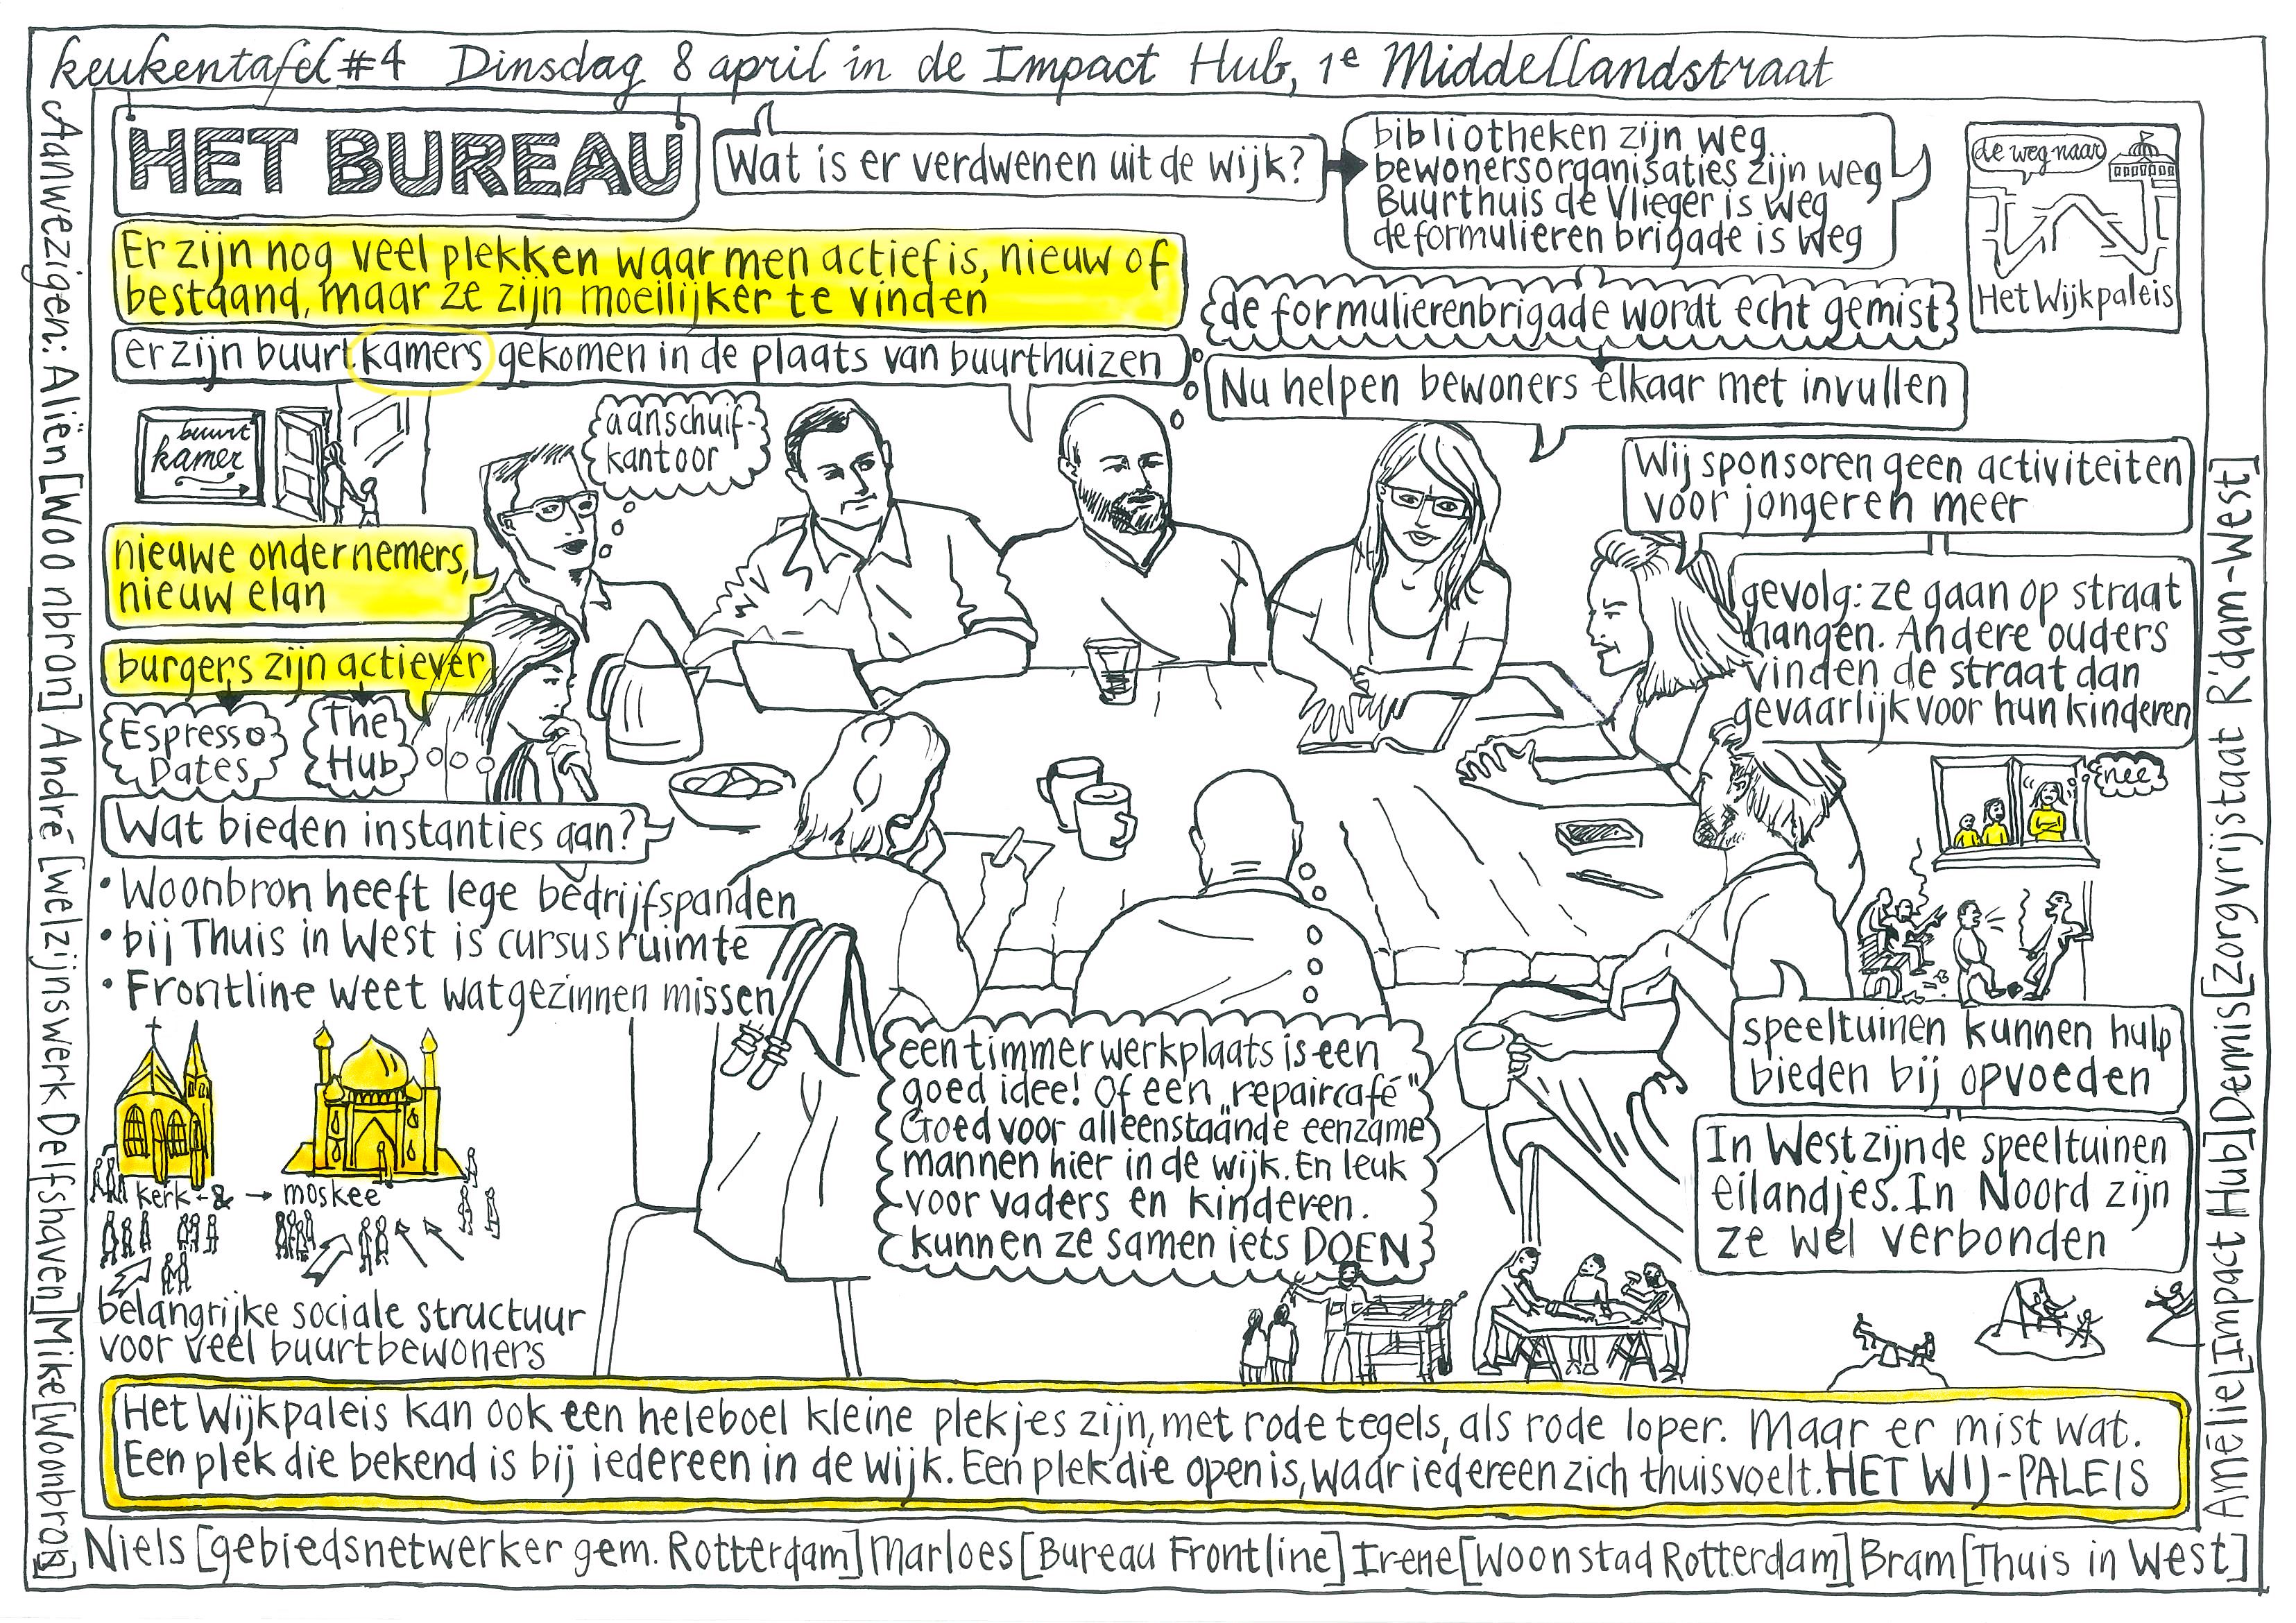 keukentafel #4 Dinsdag 8 april in de Impact Hub, 1e Middellandstraat
HET BUREAU
Wat is er verdwenen uit de wijk?
bibliotheken zijn weg
bewonersorganisaties zijn weg
Buurthuis de Vlieger is weg
de formulieren brigade is weg
de weg naar
Het Wijkpaleis
Er zijn nog veel plekken waar men actief is, nieuw of
bestaand, maar ze zijn moeilijker te vinden
er zijn buurtkamers gekomen in de plaats van buurthuizen
de formulierenbrigade wordt echt gemist
Nu helpen bewoners elkaar met invullen
buurt
kamer
aanschuif-
kantoor
Wij sponsoren geen activiteiten
voor jongeren meer
gevolg: ze gaan op straat
hangen. Andere ouders
vinden de straat dan
gevaarlijk voor hun kinderen
nee
nieuwe ondernemers,
nieuw elan
burgers zijn actiever
Espresso
Dates
The
Hub
Wat bieden instanties aan?
• Woonbron heeft lege bedrijfspanden
• bij Thuis in West is cursusruimte
• Frontline weet wat gezinnen missen
kerk - & → moskee
belangrijke sociale structuur
voor veel buurtbewoners
een timmerwerkplaats is een
goed idee! Of een „repaircafé"
Goed voor alleenstaande eenzame
mannen hier in de wijk. En leuk
voor vaders en kinderen.
kunnen ze samen iets DOEN
speeltuinen kunnen hulp
bieden bij opvoeden
In West zijn de speeltuinen
eilandjes. In Noord zijn
ze wel verbonden
Het Wijkpaleis kan ook een heleboel kleine plekjes zijn, met rode tegels, als rode loper. Maar er mist wat.
Een plek die bekend is bij iedereen in de wijk. Een plek die open is, waar iedereen zich thuisvoelt. HET WIJ-PALEIS
Aanwezigen: Aliën [Woonbron] André [welzijnswerk Delfshaven] Mike [Woonbron]
Niels [gebiedsnetwerker gem. Rotterdam] Marloes [Bureau Frontline] Irene [Woonstad Rotterdam] Bram [Thuis in West]
Amélie [Impact Hub] Dennis [Zorgvrijstaat R'dam-West]